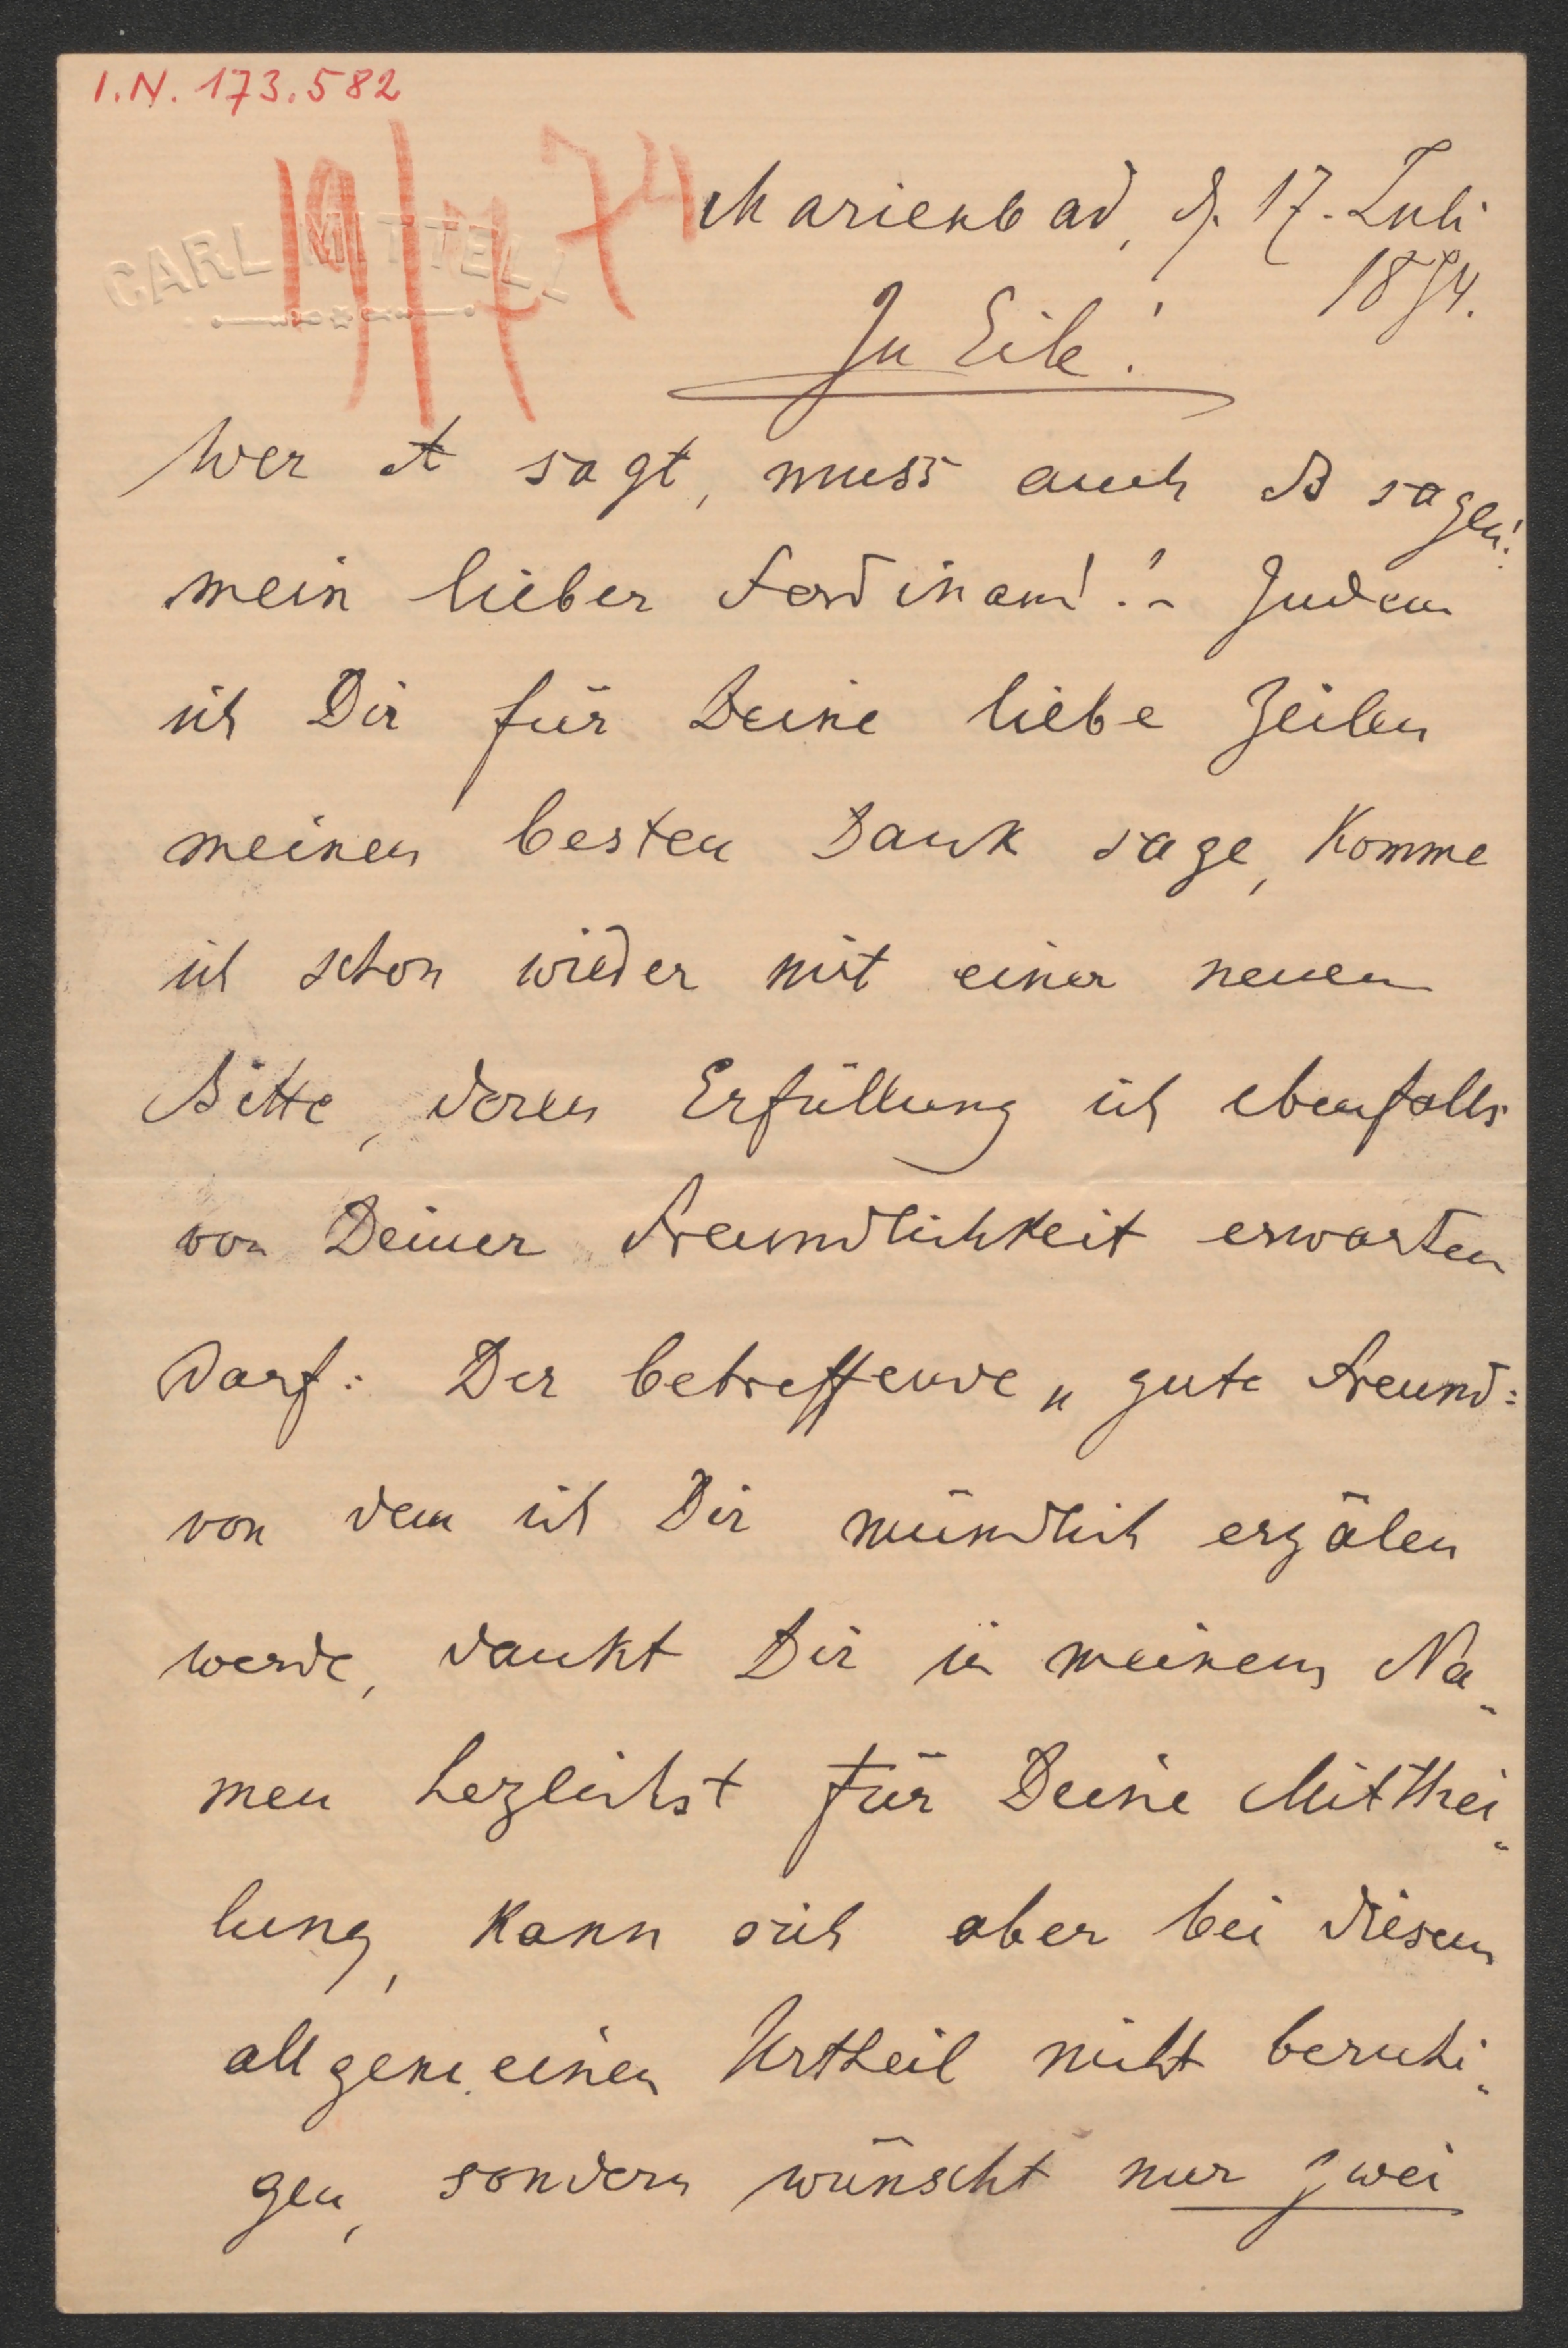 I.N. 173.582
19/7 74
CARL MITTELL
Marienbad, d. 17. Juli
1874.
In Eile!
Wer A sagt, muss auch B sagen!
mein lieber Ferdinand! – Indem
ich Dir für Deine liebe Zeilen
meinen besten Dank sage, komme
ich schon wieder mit einer neuen
Bitte, deren Erfüllung ich ebenfalls
von Deiner Freundlichkeit erwarten
darf: Der betreffende „gute Freund"
von dem ich Dir mündlich erzälen
werde, dankt Dir in meinem Na-
men hezlichst für Deine Mitthei-
lung, kann sich aber bei diesem
allgemeinen Urtheil nicht beruhi-
gen, sondern wünscht nur zwei